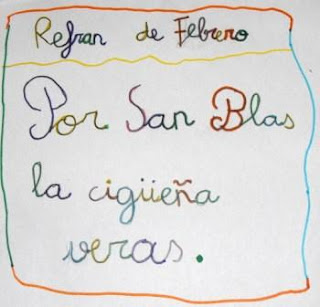 Refran de Febrero
Por San Blas
la cigüeña
veras.